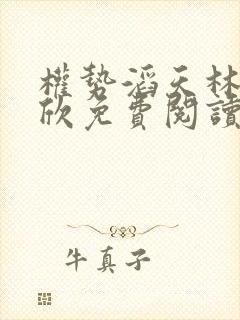 權勢滔天林
欣免費閱讀
牛真子